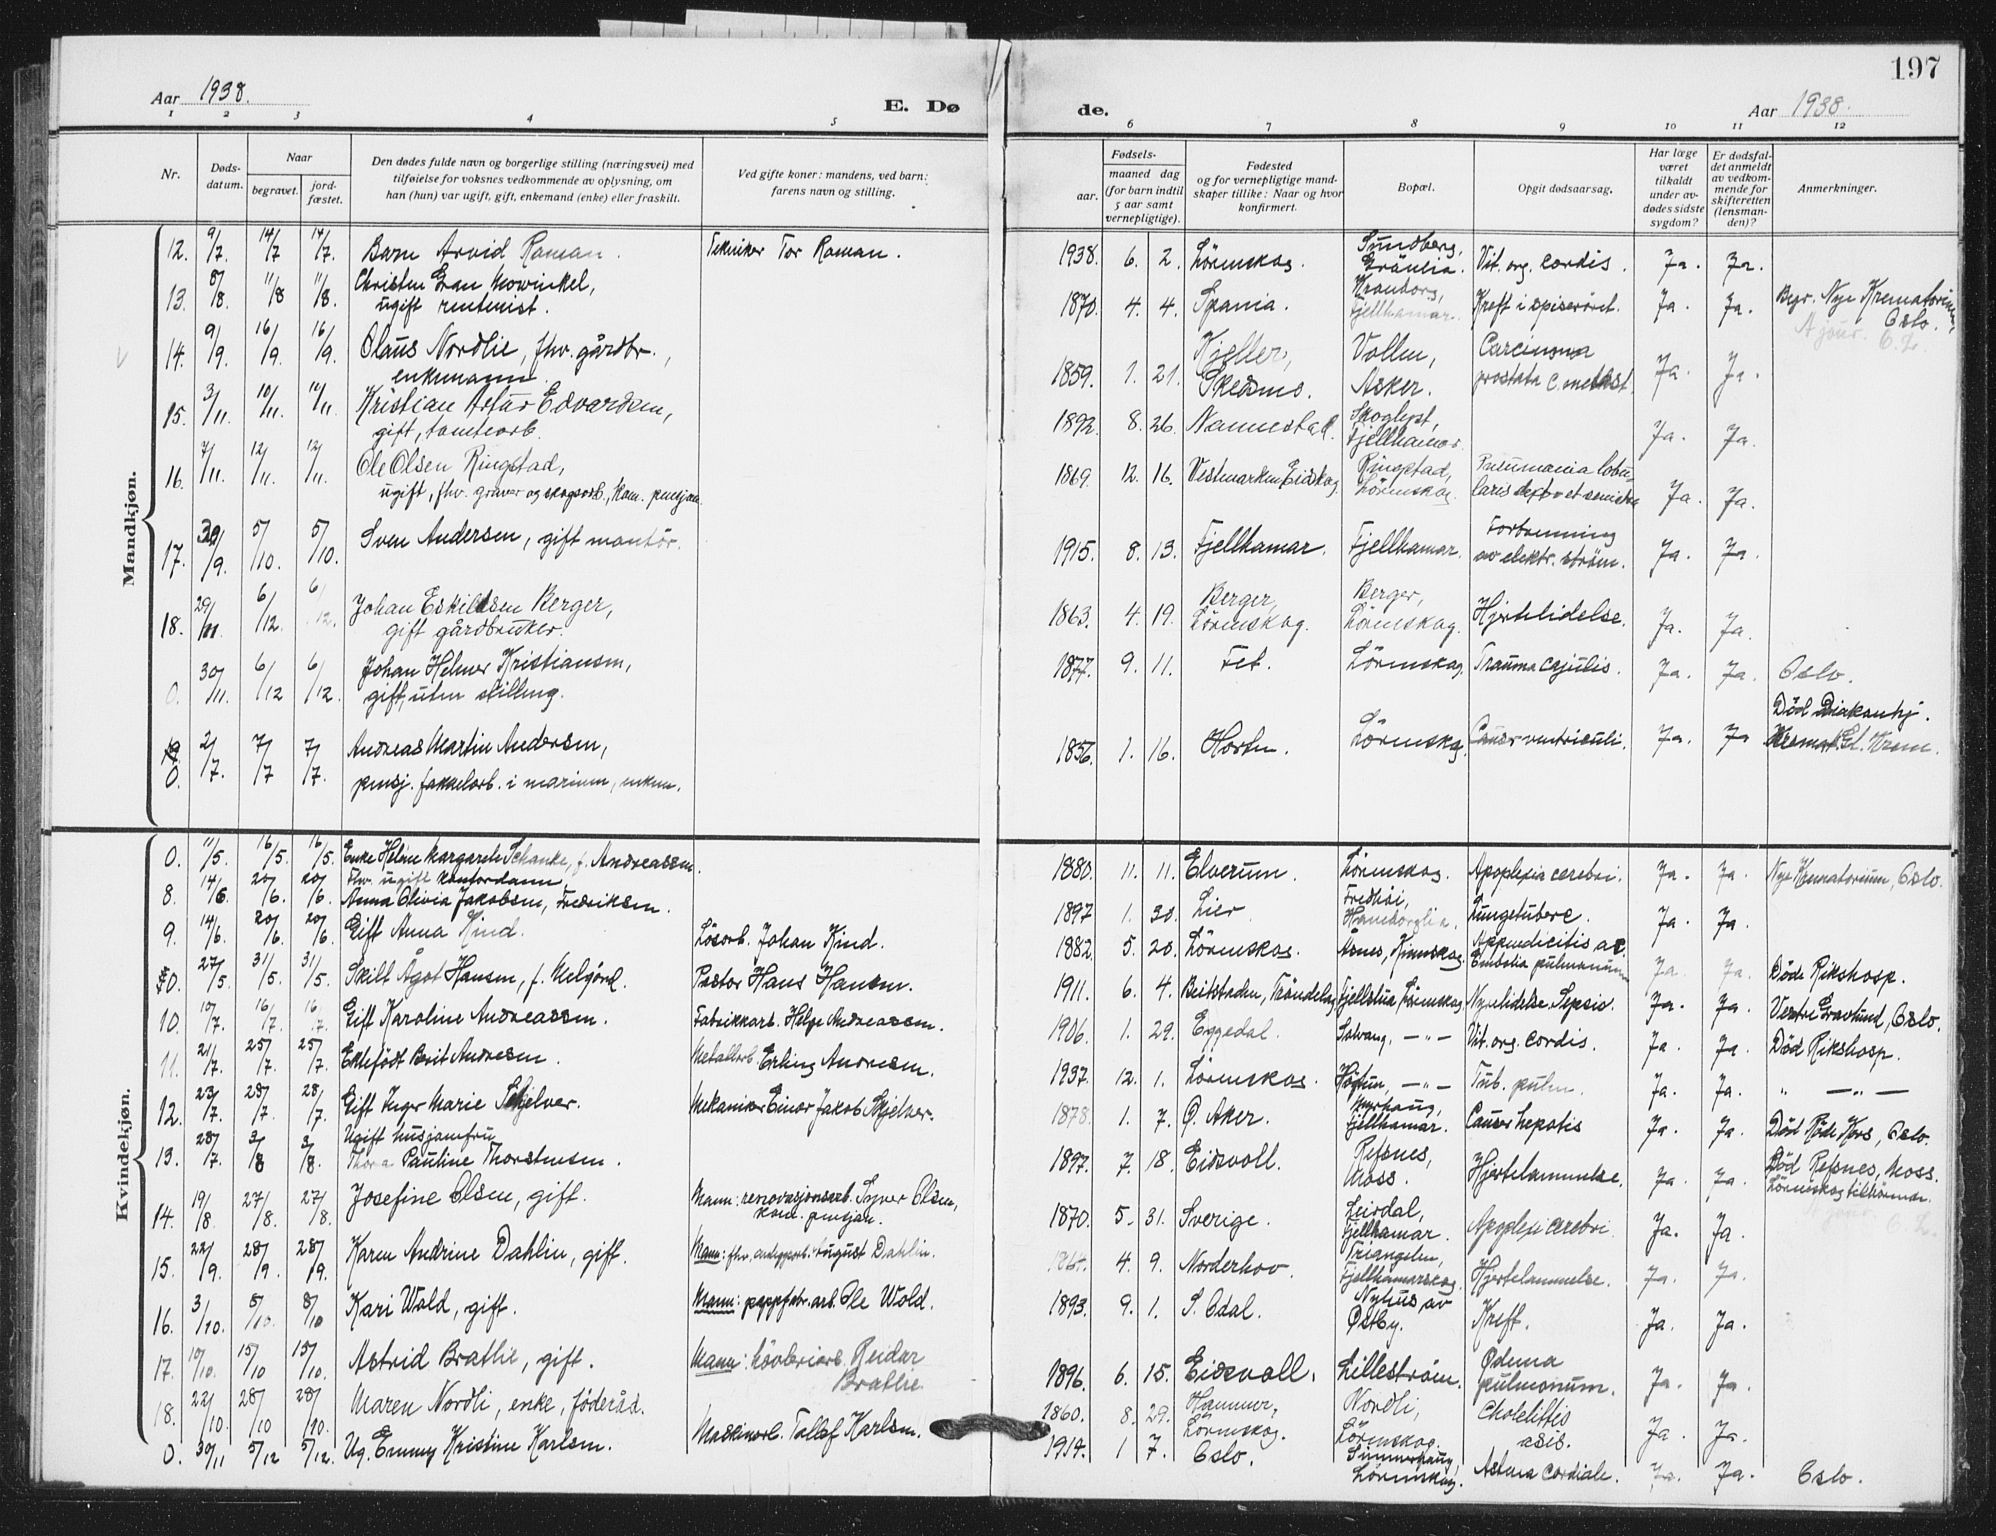 197
Aar 1938.
E. Døde.
Aar 1938.
1 2 3 4 5 6 7 8 9 10 11 12
Nr.
Døds-datum.
Naar
begravet.
jord-fæstet.
Den dødes fulde navn og borgerlige stilling (næringsvei) med
tilføielse for voksnes vedkommende av oplysning, om
han (hun) var ugift, gift, enkemand (enke) eller fraskilt.
Ved gifte koner: mandens, ved barn:
farens navn og stilling.
Fødsels-
aar. maaned dag
(for barn indtil
5 aar samt
vernepligtige).
Fødested
og for vernepligtige mand-
skaper tillike: Naar og hvor
konfirmert.
Bopæl.
Opgit dødsaarsag.
Har læge
været
tilkaldt
under av-
dødes sidste
sygdom?
Er dødsfal-
det anmeldt
av vedkom-
mende for
skifteretten
(lensman-
den)?
Anmerkninger.
Mandkjøn.
12. 9/7. 14/7 14/7. Barn Arvid Roman. Tekniker Tor Roman. 1938. 6. 2. Lörenskog. Sundberg, Vit. org. cordis. Ja. Ja.
13. 8/8. 11/8 11/8. Christen Gran Mowinkel,
ugift rentenist. 1870. 4. 4. Spania. Kranborg,
Fjellhamar. Kreft i spiserøret. Ja. Ja. Begr. Nye Krematorium
Oslo.
14. 9/9. 16/9. 16/9. Olaus Nordlie, fhv. gårdbr.,
enkemann. 1859. 1. 21. Kjeller,
Skedsmo. Vollen,
Asker. Carcinoma
prostata c. metast. Ja. Ja.
15. 3/11. 10/11. 10/11. Kristian Artur Edvardsen,
gift, tomtearb. 1892. 8. 26. Nannestad. Skoglyst,
Fjellhamar. Ja. Ja.
16. 7/11. 12/11. 12/11. Ole Olsen Ringstad,
ugift, fhv. graver og skogsarb., kom. pensjon. 1869. 12. 16. Vestmarken Eidskog Ringstad,
Lörenskog. Pneumonia lobu-
laris dextra et sinistra Ja. Ja.
17. 30/9. 5/10. 5/10. Sven Andersen, gift montör. 1915. 8. 13. Fjellhamar. Fjellhamar. Forbrenning
av elektr. ström. Ja. Ja.
18. 29/11. 6/12. 6/12. Johan Eskildsen Berger,
gift gårdbruker. 1863. 4. 19. Berger,
Lörenskog. Berger,
Lörenskog. Hjertelidelse. Ja. Ja.
0. 30/11. 6/12 6/12. Johan Helmer Kristiansen,
gift, uten stilling. 1877. 9. 11. Fet. Lörenskog. Trauma Ja. Ja. Oslo.
0. 2/7. 7/7 7/7. Andreas Martin Andersen,
pensj. fakkelarb. i marinen, enkem. 1856. 1. 16. Horten. Lörenskog. Cancer ventriculi. Ja. Ja Död Diakonhj.
Gl. Krem.
Kvindekjøn.
0. 11/5. 16/5. 16/5. Enke Helene Margarete Schanke, f. Andreassen. 1880. 11. 11. Elverum. Lörenskog. Apoplexia cerebri. Ja. Ja. Nye Krematorium, Oslo.
8. 14/6 20/6. 20/6. Fhv. ugift kontordame
Anna Olivia Jakobsen, Fredriksen. 1897 1. 30. Lier. Fredhöi, Lungetuberc. Ja. Ja.
9. 14/6. 20/6. 20/6. Gift Anna Kind. Lösarb. Johan Kind. 1882. 5. 20. Lörenskog. Åsnes, Appendicitis ac.
Embolia pulmonum Ja. Ja.
0. 27/5 31/5. 31/5. Skilt Ågot Hansen, f. Melgård. Pastor Hans Hansen. 1911. 6. 4. Beitstaden, Tröndelag Fjellstua, Lörenskog. Nyrelidelse. Sepsis. Ja. Ja. Döde Rikshosp.
Vestre Gravlund, Oslo.
10. 10/7. 16/7. 16/7. Gift Karoline Andreassen. Fabrikkarb. Helge Andreassen. 1906. 1. 29. Eggedal. Solvang. — „ — Vit. org. cordis. Ja. Ja. Död Rikshosp.
11. 21/7. 25/7. 25/7. Ektefödt Berit Andresen. Metallarb Erling Andresen. 1937. 12. 1. Lörenskog. — „ — Tub. pulm. Ja. Ja. „ — „ —
12. 23/7. 28/7. 28/7. Gift Inger Marie Skjelver. Mekaniker Einar Jakob Skjelver. 1878. 1. 7. Ø. Aker. Fjellhamar. Cancer hepatis Ja. Ja. Död Röde Kors, Oslo.
13. 28/7 3/8 3/8. Ugift husjomfru
Thora Pauline Thorstensen. 1897. 7. 18. Eidsvoll. Refsnes,
Moss. Hjertelammelse. Ja. Ja. Död Refsnes, Moss.
Lörenskog tilhörende.
14. 19/8 27/8. 27/8. Josefine Olsen, gift. Mann: renovasjonsarb. Syver Olsen,
kom. pensjon. 1870. 5. 31. Sverige. Fjellhamar. Apoplexi cerebri Ja. Ja.
15. 22/9. 28/9. 28/9. Karen Andrine Dahlin, gift. Mann: fhv. August Dahlin. 1864. 4. 9. Norderhov. Triangelen,
Fjellhamarskog. Hjertelammelse. Ja. Ja.
16. 3/10. 5/10. 8/10 Kari Wald, gift. Mann: pappfabr. arb. Ole Wold. 1893. 9. 1. S. Odal. Nyhus av
Østby. Kreft. Ja. Ja.
17. 10/10 15/10 15/10. Astrid Brathe, gift. Mann: hövleriarb. Reidar
Brathe. 1896. 6. 15. Eidsvoll. Lilleström. Ødema
pulmonum. Ja. Ja.
18. 22/10. 28/10 28/10. Maren Nordli, enke, föderåd. 1860. 8. 29. Hammer,
Lörenskog. Nordli,
Lörenskog. Ja. Ja.
0. 30/11 5/12 5/12. Ug. Emmy Kristine Karlsen. Maskinarb. Tollef Karlsen. 1914. 1 7. Oslo.
Lörenskog. Astma cordiale. Ja. Ja. Oslo.